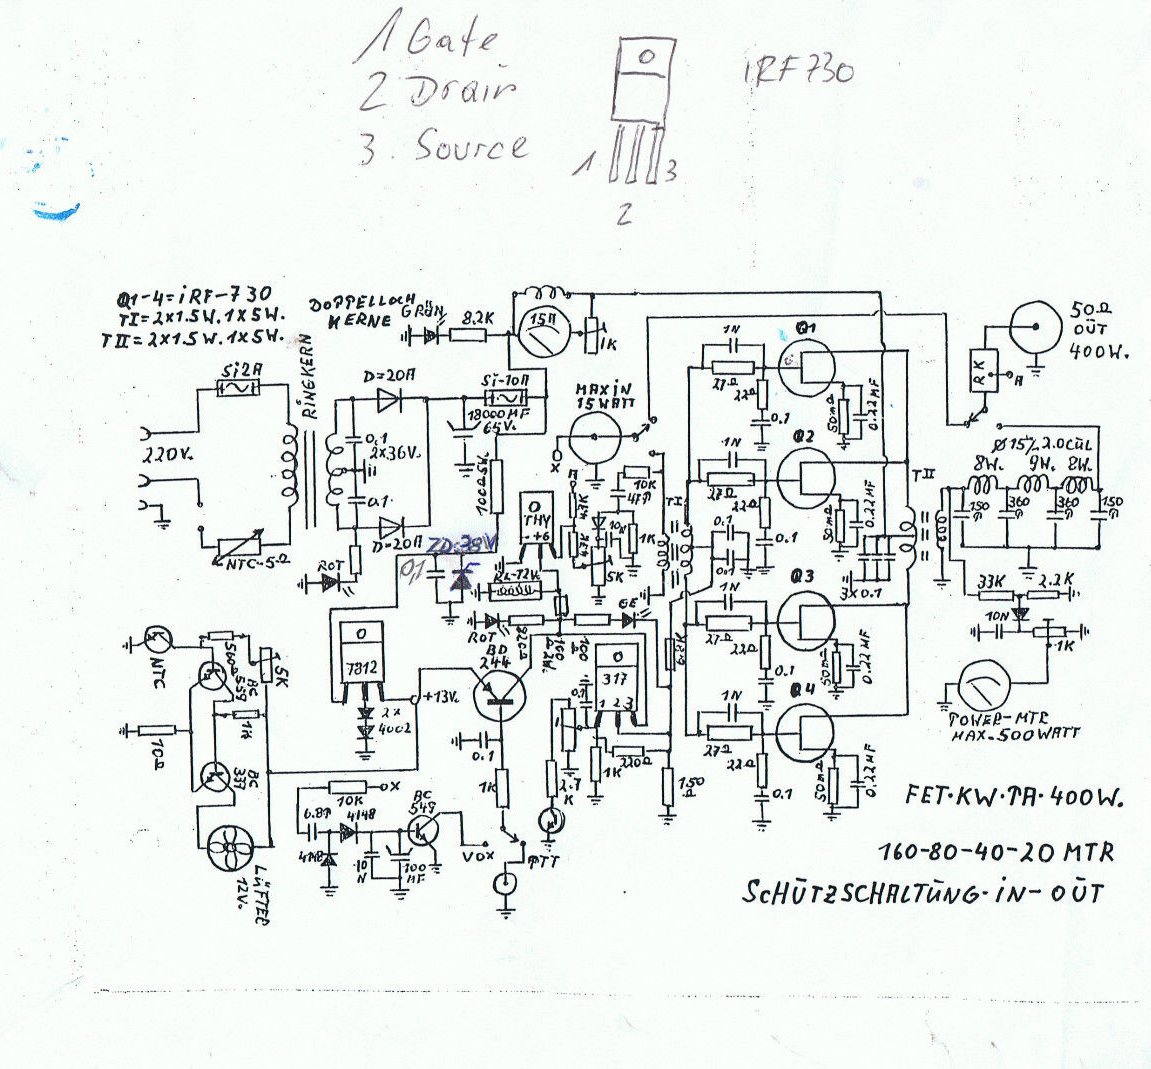 1 Gate
2 Drain
3. Source
iRF 730
1
3
2
Q1-4=iRF-730
TI=2X1.5W.1X5W.
TII=2X1.5W.1X5W.
DOPPELLOCH
KERNE
RINGKERN
GRÜN
8.2K
15A
1K
Si2A
220V.
NTC-5Ω
D=20A
0.1
2X36V.
0.1
D=20A
ROT
Si-10A
18000MF
65V.
100Ω5W.
ZD-39V
0,1
MAX iN
15WATT
X
10K
47P
4.7K
47K
10N
1K
5K
THY
- +6
RL-12V.
ROT
820Ω
GE
100Ω
BD
244
7812
+13V.
2X
4002
0.1
1K
317
1 2 3
0.1
1K
220Ω
2.7
K
150
6.8K
TI
0.1
0.1
1N
27Ω
22Ω
0.1
Q1
50mΩ
0.22MF
1N
27Ω
22Ω
0.1
Q2
50mΩ
0.22MF
3X0.1
1N
27Ω
22Ω
0.1
Q3
50mΩ
0.22MF
1N
27Ω
22Ω
0.1
Q4
50mΩ
0.22MF
TII
50Ω
OUT
400W.
RK
A
Ø15% 2.0CUL
8W. 9W. 8W.
150
P
360
P
360
P
150
P
33K
2.2K
10N
1K
POWER-MTR
MAX.500WATT
NTC
560Ω
BC
559
5K
1K
10Ω
BC
337
LÜFTER
12V.
10K
OX
6.8P
4148
4148
10
N
100
MF
BC
549
VOX
PTT
FET·KW·PA·400W.
160-80-40-20 MTR
SCHÜTZSCHALTŪNG-iN-OŪT